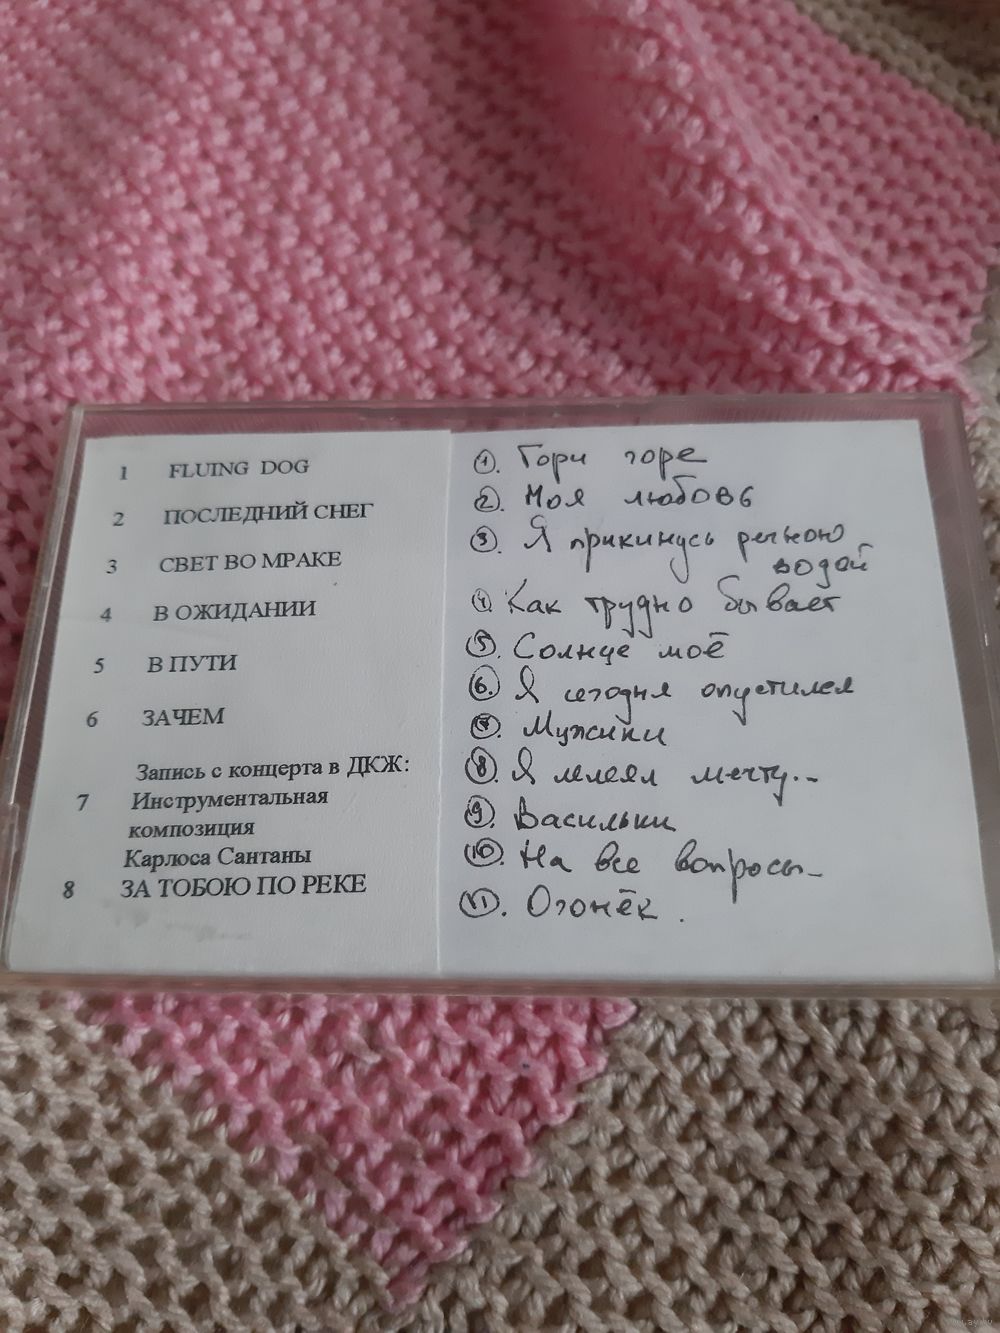 1 FLUING DOG
2 ПОСЛЕДНИЙ СНЕГ
3 СВЕТ ВО МРАКЕ
4 В ОЖИДАНИИ
5 В ПУТИ
6 ЗАЧЕМ
Запись с концерта в ДКЖ:
7 Инструментальная
композиция
Карлоса Сантаны
8 ЗА ТОБОЮ ПО РЕКЕ
1. Гори горе
2. Моя любовь
3. Я прикинусь речною
водой
4. Как трудно бывает
5. Солнце моё
6. Я сегодня опустился
7. Мужики
8. Я лелеял мечту..
9. Васильки
10. На все вопросы
11. Огонёк.